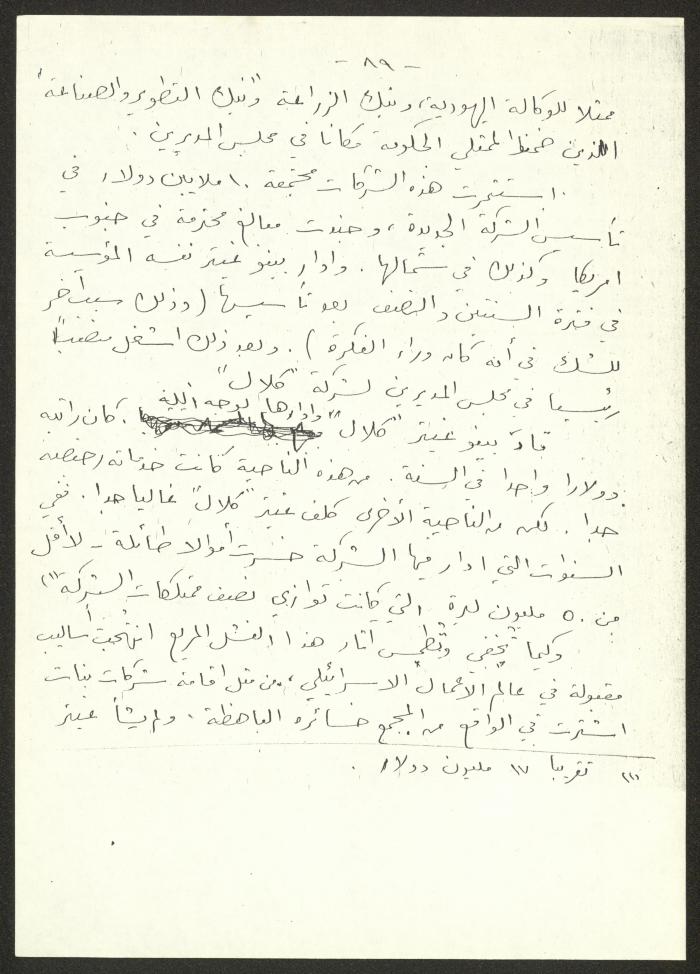 - ٨٩ -
ممثلا للوكالة اليهودية، وبنك الزراعة و"بنك التطوير والصناعة"
الذين ضمنوا لممثلي الحكومة مكانا في مجلس المديرين.
استثمرت هذه الشركات مجتمعة ١٠ ملايين دولار في
تأسيس الشركة الجديدة، وجندت مبالغ محترمة في جنوب
امريكا وكذلك في شمالها. وادار بينو غيتر نفسه المؤسسة
في فترة السنتين والنصف بعد تأسيسها (وذلك سبب آخر
للشك في أنه كان وراء الفكرة). وبعد ذلك اشغل منصبا
رئيسيا في مجلس المديرين لشركة "كلال"
قاد بينو غيتر "كلال" وادارها لوجه الله. كان راتبه
دولارا واحدا في السنة. من هذه الناحية كانت خدماته رخيصة
جدا. لكن من الناحية الأخرى كلف غيتر "كلال" غاليا جدا. ففي
السنوات التي ادار فيها الشركة خسرت أموالا طائلة - لأقل
من ٥٠ مليون ليرة التي كانت توازي نصف ممتلكات الشركة(١)
وكيما تخفي وتطمس آثار هذا الفشل المريع انتهجت أساليب
مقبولة في عالم الاعمال الاسرائيلي، من مثل اقامة شركات بنات
اشترت في الواقع من المجمع خسائره الباهظة. ولم يشأ غيتر
(١) تقريبا ١٧ مليون دولار.